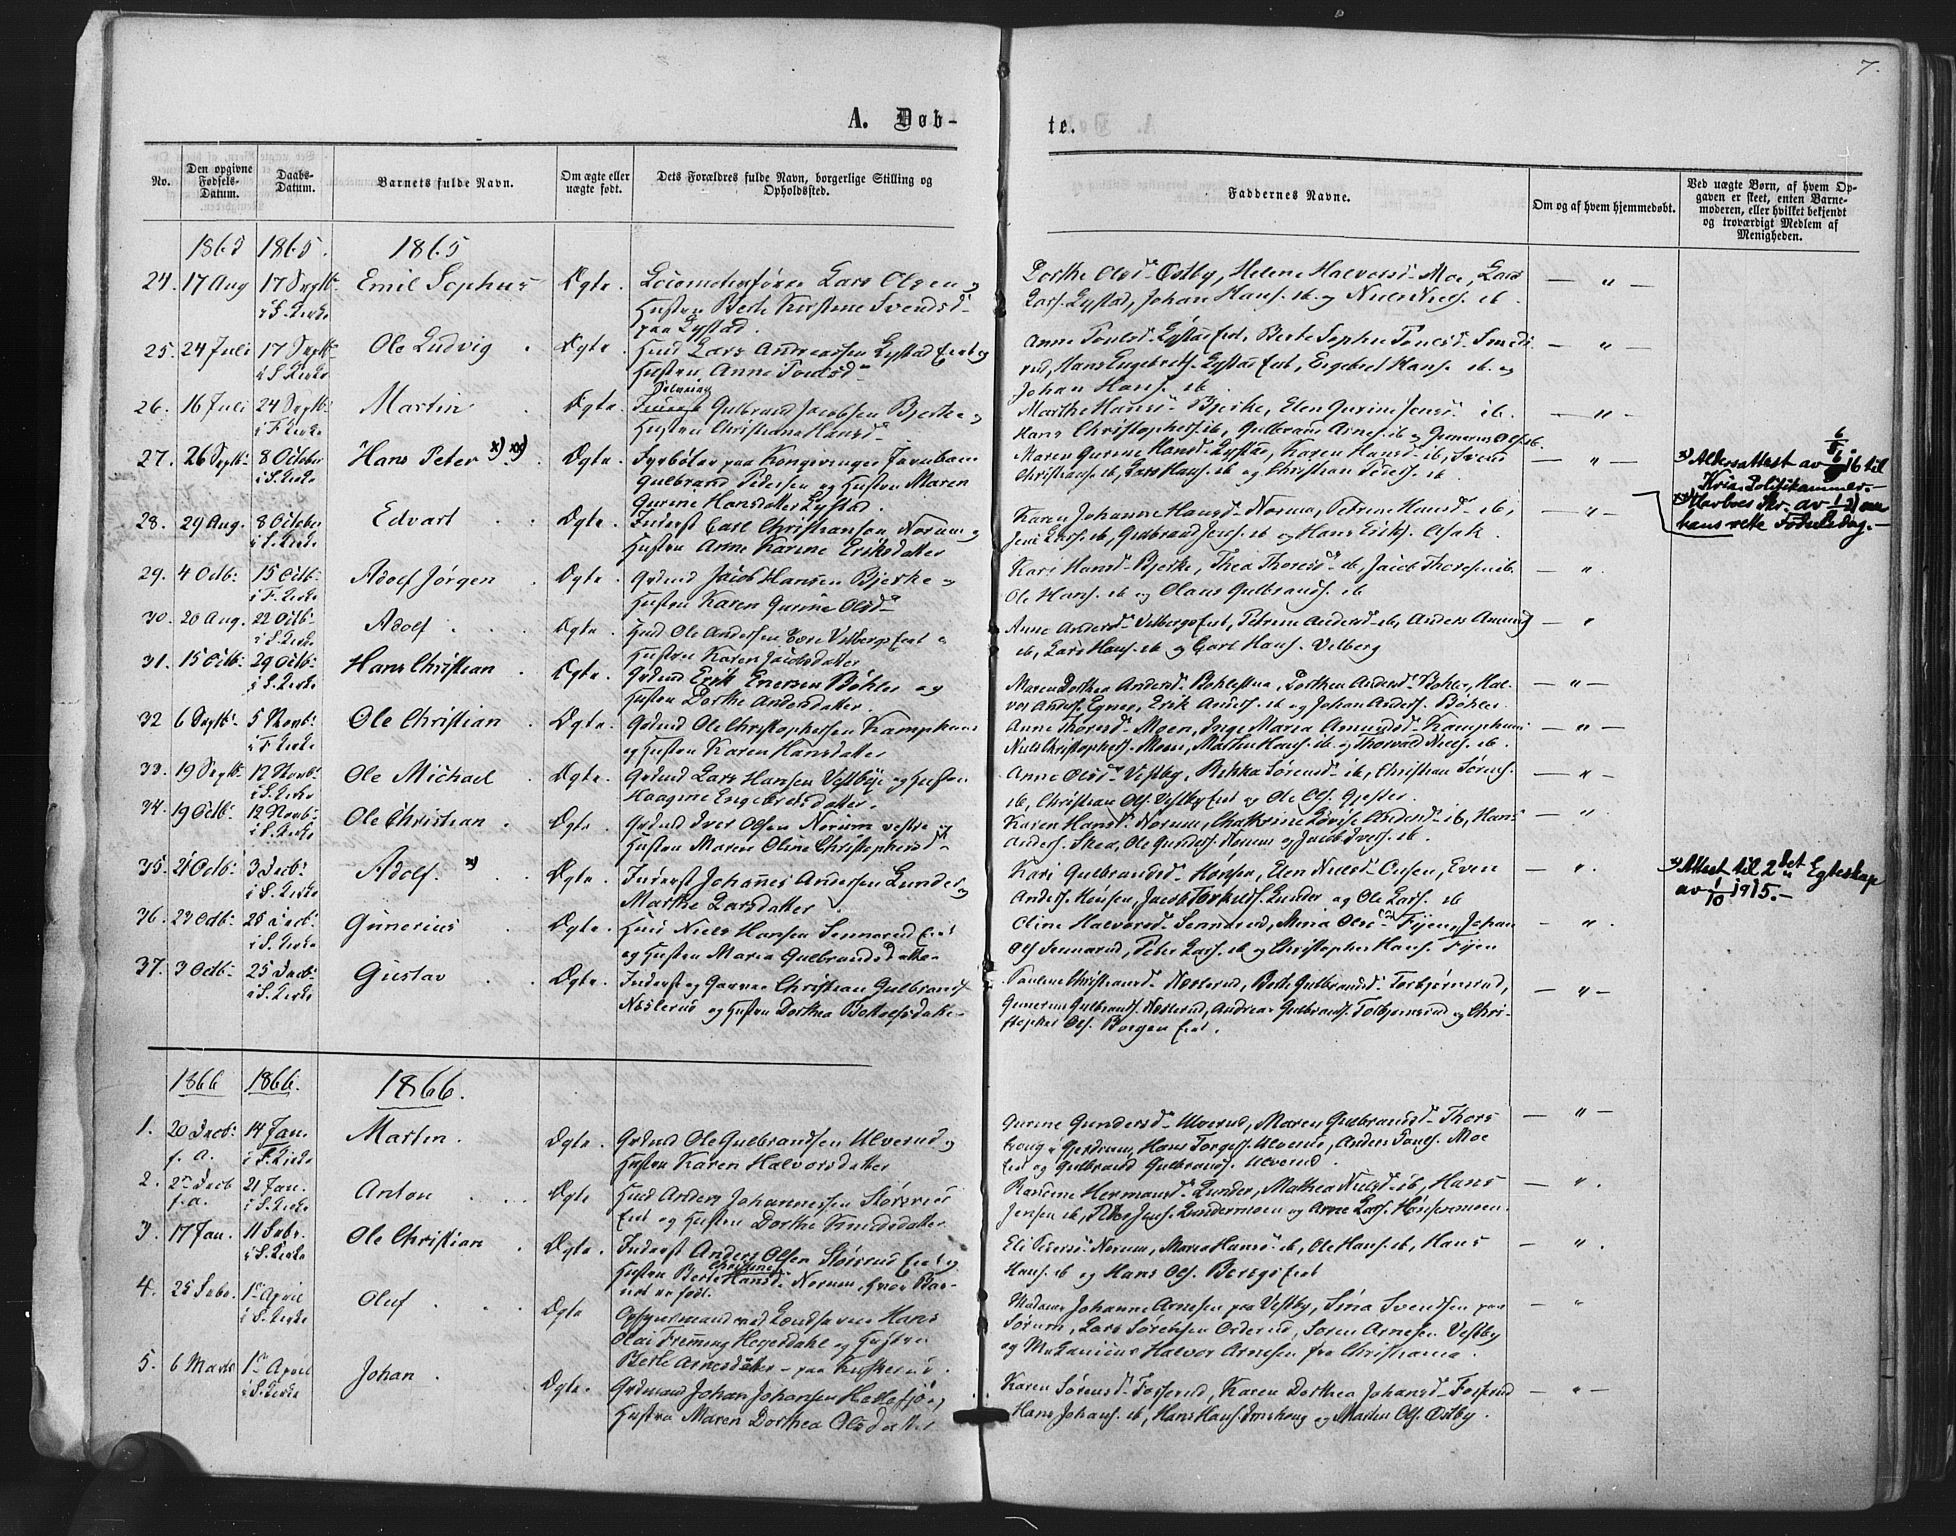 7.
A. Døb-
te.
No.
Den opgivne Fødsels-Datum.
Daabs-Datum.
Barnets fulde Navn.
Om ægte eller uægte født.
Dets Forældres fulde Navn, borgerlige Stilling og Opholdssted.
Faddernes Navne.
Om og af hvem hjemmedøbt.
Ved uægte Børn, af hvem Op-
gaven er skeet, enten Barne-
moderen, eller hvilket bekjendt
og troværdigt Medlem af
Menigheden.
1865 1865. 1865
24. 17 Aug 17 Septb: Emil Sophus Ægte. Locomotivfører Lars Olsen og
i S. Kirke Hustru Berte Kirstine Svendsd.
paa Lystad.
Dorthe Olsd. Østby, Helene Halvorsd. Moe, Lars
Lars. Lystad, Johan Hans. ib. og Niels Niels. ib.
25. 24 Juli 17 Septb: Ole Ludvig Ægte. Husmd Lars Andreassen Lystad Eiet og
i S. Kirke Hustru Anne Poulsd.
Anne Poulsd. Lystad Eiet, Berte Sophie Poulsd. Smeds-
rud, Hans Engebrets. Lystad Eiet, Engebret Hans. ib. og
Johan Hans. ib.
26. 16 Juli 24 Septb: Martin Ægte. Gulbrand Jacobsen Bjerke og
i F. Kirke Hustru Christiane Hansd.
Marthe Hansd. Bjerke, Elen Gurine Jensd. ib.
Hans Christophers. ib, Gulbrand Arnes. ib og Gunerius Ols. ib.
27. 26 Septb: 8 October Hans Peter x) xx) Ægte. Fyrbøter paa Kongsvinger Jernbane
i S. Kirke Gulbrand Pedersen og Hustru Maren
Gurine Hansdatter Lystad.
Maren Gurine Hansd. Lystad, Karen Hansd. ib, Svend
Christians. ib, Lars Hans. ib og Christian Peders. ib
x) Aldersattest av 6/6 16 til
Kria. Politikammer.-
xx) om
hans rette Fødselsdag.-
28. 29 Aug. 8 October Edvart Ægte. Inderst Carl Christiansen Norum og
i S. Kirke Hustru Anne Karine Eriksdatter
Karen Johanne Hansd. Norum, Petrine Hansd. ib,
Jens Lars. ib, Gulbrand Jens. ib og Hans Eriks. Asak.
29. 4 Octb: 15 Octb: Adolf Jørgen Ægte. Grdmd Jacob Hansen Bjerke og
i F. Kirke Hustru Karen Gurine Olsd.
Kari Hansd. Bjerke, Thea Thoresd. ib, Jacob Thoresen ib.
Ole Hans. ib og Olaus Gulbrands. ib
30. 20 Aug. 22 Octb: Adolf Ægte. Husmd Ole Andersen Vilbergs Eiet og
i S. Kirke Hustru Karen Jacobsdatter
Anne Andersd. Vilbergs Eiet, Petrine Andersd. ib, Anders Amund
ib, Lars Hans. ib og Carl Hans. Vilberg
31. 15 Octb: 29 Octb: Hans Christian Ægte. Grdmd Erik Enersen Bøhler og
i S. Kirke Hustru Dorthe Andersdatter.
Maren Dorthea Andersd. Bøhlestua, Dorthea Andersd. Bøhler, Hal-
vor Anders. Egner, Erik Anders. ib og Johan Anders. Bøhler
32 6 Septb: 5 Novb: Ole Christian Ægte. Grdmd Ole Christophersen Kamphaug
i F. Kirke og Hustru Karen Hansdatter
Anne Thoresd. Moen, Inge Maria Amundsd. Kamphaug
Niels Christophers. Moen, Mathis Hans. ib. og Thorvald Niels. ib.
33. 19 Septb: 12 Novb: Ole Michael Ægte. Grdmd Lars Hansen Vestbye og Hustru
i S. Kirke Haagine Engebretsdatter.
Anne Olsd. Vestby, Rebekka Sørensd. ib, Christian Sørens.
ib, Christian Ols. Vestby Eiet og Ole Ols. Gjester.
34. 19 Octb: 12 Novb: Ole Christian Ægte. Grdmd Iver Olsen Norum vestre og
i S. Kirke Hustru Maren Oline Christophersd.
Karen Hansd. Norum, Cathrine Lovise Andersd. ib, Hans
Anders. Skea, Ole Gunders. Norum og Jacob Ivers. ib.
35. 21 Octb: 3 Decb: Adolf. x) Ægte. Inderst Johannes Andersen Lunder og
i S. Kirke Marthe Larsdatter.
Kari Gulbrandsd. Hønsen, Elen Nielsd. , Even
Anders. Hønsen, Jacob Torkilds. Lunder og Ole Lars. ib
x) Attest til 2det Egteskap
av 1/10 1915.-
36. 23 Octb: 26 Decb: Gunerius Ægte. Husmd Niels Hansen Sennerud Eiet
i S. Kirke og Hustru Maria Gulbrandsdatter
Oline Halvorsd. Sennerud, Maria Olsd. Fijen, Johan
Ols. Sennerud, Peter Lars. ib og Christopher Hans. Fijen
37. 3 Octb: 25 Decb: Gustav Ægte. Inderst og Garver Christian Gulbrands.
i S. Kirke Neslerud og Hustru Dorthea
Pauline Christiansd. Neslerud, Berte Gulbrandsd. Torbjørnsrud,
Gunerius Gulbrands. Neslerud, Andreas Gulbrands. Torbjørnsrud og Chri-
stopher Ols. Borgen Eiet.
1866 1866. 1866.
1. 20 Decb: 14 Jan. Martin. Ægte. Grdmd Ole Gulbrandsen Ulverud og
f. A. i S. Kirke Hustru Karen Halvorsdatter
Gurine Gundersd. Ulverud, Maren Gulbrandsd. Thors
haug i Gjerdrum, Hans Torgers. Ulverud, Anders Pauls. Moe
Eiet og Gulbrand Gulbrands. Ulverud.
2. Decb 21 Jan. Anton Ægte Husmd Anders Johannessen Størsrud
f. a. i S. Kirke Eiet og Hustru Dorthe Knudsdatter
Hermansd. Lunder, Mathea Nielsd. ib, Hans
Jensen ib, Peder Jens. Lundermoen og Arne Lars. Hønsenmoen.
3. 17 Jan. 11 Febr. Ole Christian Ægte. Inderst Anders Olsen Størsrud Eiet og
i S. Kirke Hustru Berte Christine Hansd. Norum, hvor Bar-
net er født.
Eli Pedersd. Norum, Maria Hansd. ib, Ole Hans. ib, Hans
Hans. ib og Hans Ols. Bergs Eiet
4. 25 Febr. 1ste April Oluf Ægte Opsynsmand ved Hans
i S. Kirke Olai Flemming Hegerdahl og Hustru
Berte Arnesdatter paa .
Madame Johanne Arnesen paa Vestby, Sina Svendsen paa
Sørum, Lars Sørensen Orderud, Soren Arnesen Vestby
og Halvor Arnesen fra Christiania.
5. 6 Marts 1ste April Johan Ægte. Grdmand Johan Johansen og
i S. Kirke Hustru Maren Dorthea Olsdatter
Karen Sørensd. Fosserud, Karen Dorthea Johansd. Fosserud
Hans Johans. ib, Hans Hans. og Martin Ols. Østby.